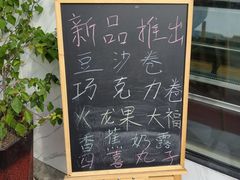 新品推出
豆沙卷
巧克力卷
火龙果大福
香蕉奶露
四喜丸子